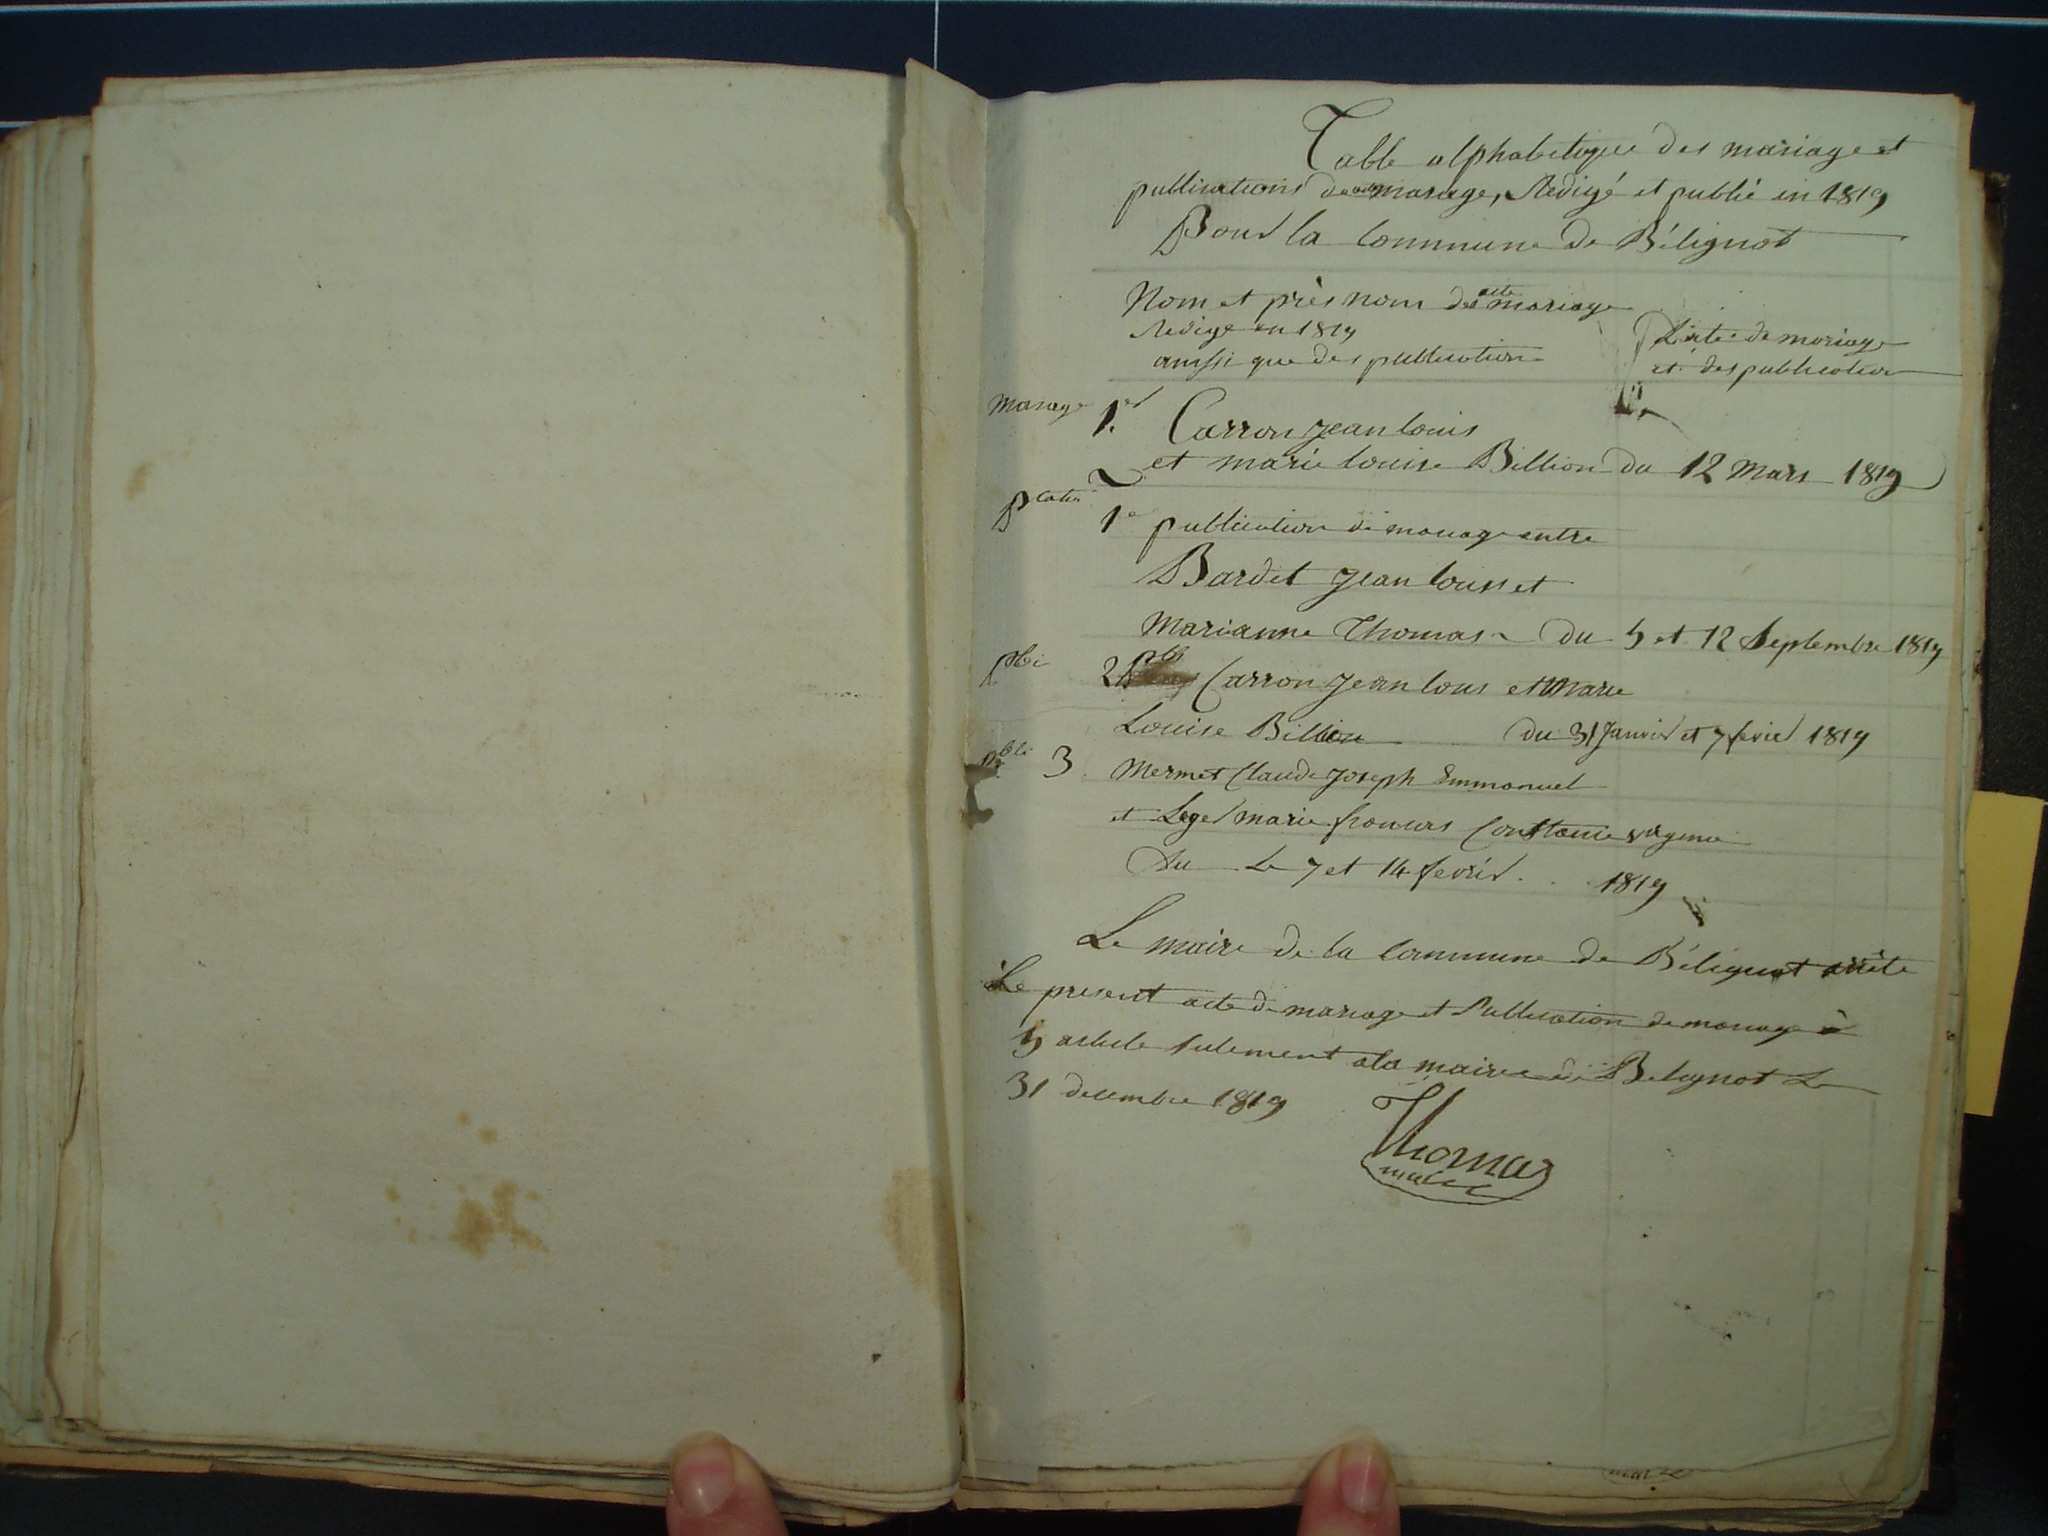 Table alphabetique des mariage et
publications de mariage, Redigé et publié en 1819
Pour la commune de Bélignot
Nom et prèsnom des acte mariage
Redige en 1819
aussi que des publication
Date de mariage
et des publication
mariage 1.er Carron jean louis
et marie louise Billion du 12 Mars 1819
pcation 1e publication de mariage entre
Bardet jean louis et
Marianne Thomas du 5 et 12 Septembre 1819
pbli 2 Carron jean louis et Marie
Louise Billion du 31 janvier et 7 fevrier 1819
pbli 3 Mermet Claude joseph Emmanuel
et Leger marie francois Constance
Du Le 7 et 14 fevrier . . 1819
Le maire de la commune de Bélignot arrête
Le present acte de mariage et Publication de mariage à
5 article seulement a la mairie de Belignot Le
31 decembre 1819
Thomas
maire